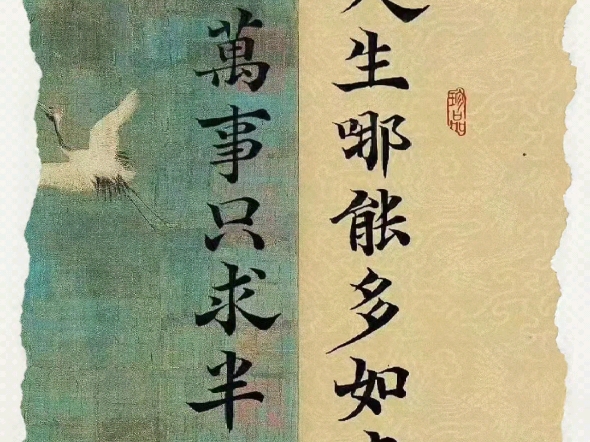 生哪能多如
萬事只求半
珍品